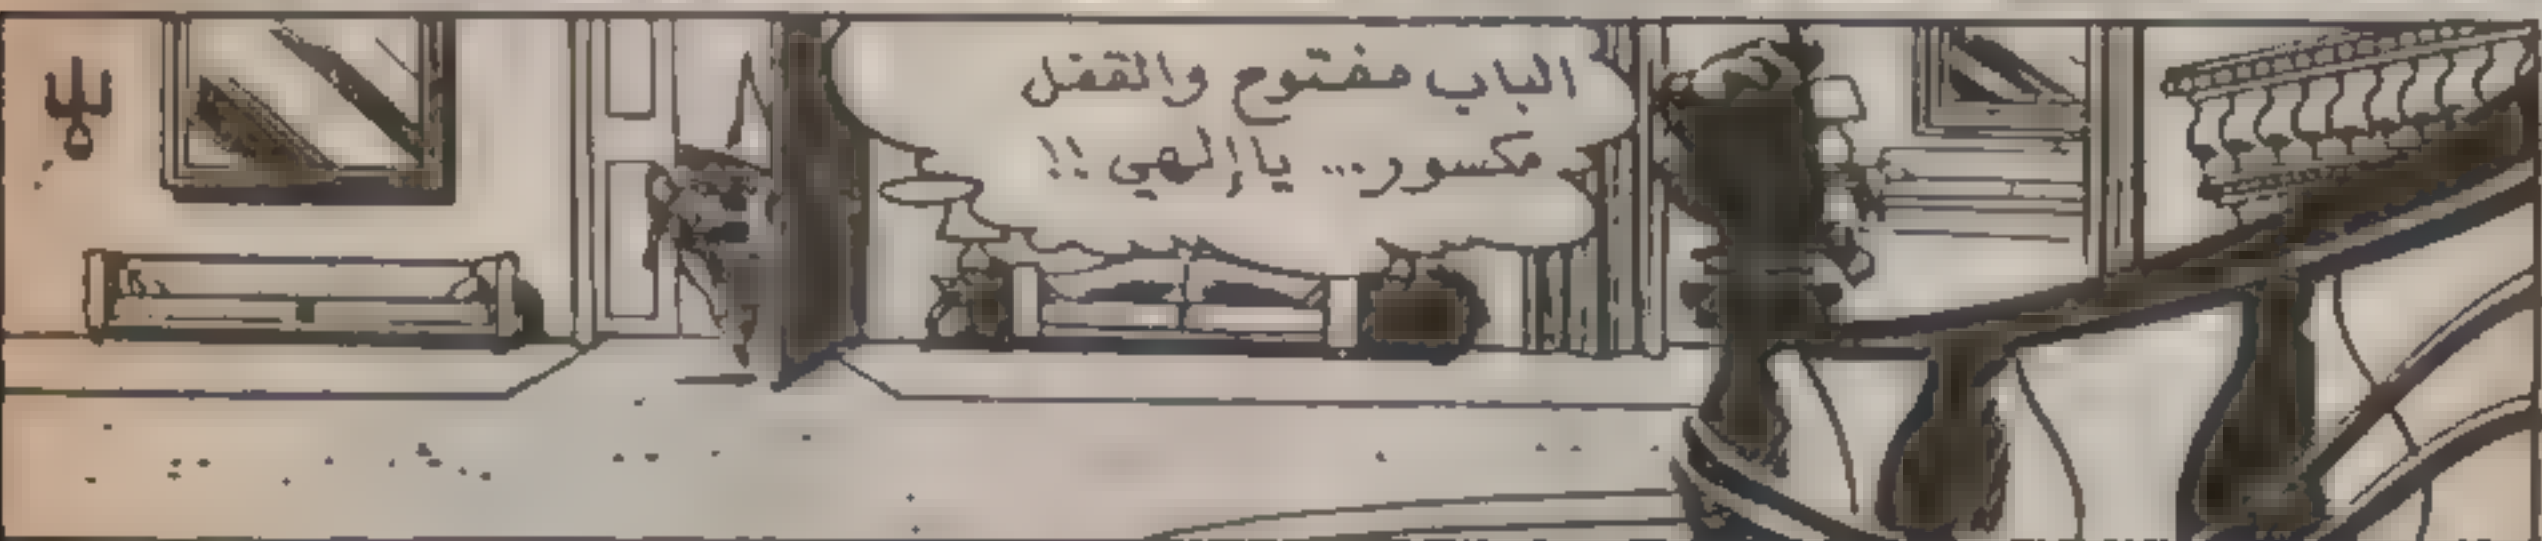 الباب مفتوح والقفل
مكسور... ياإلهي !!